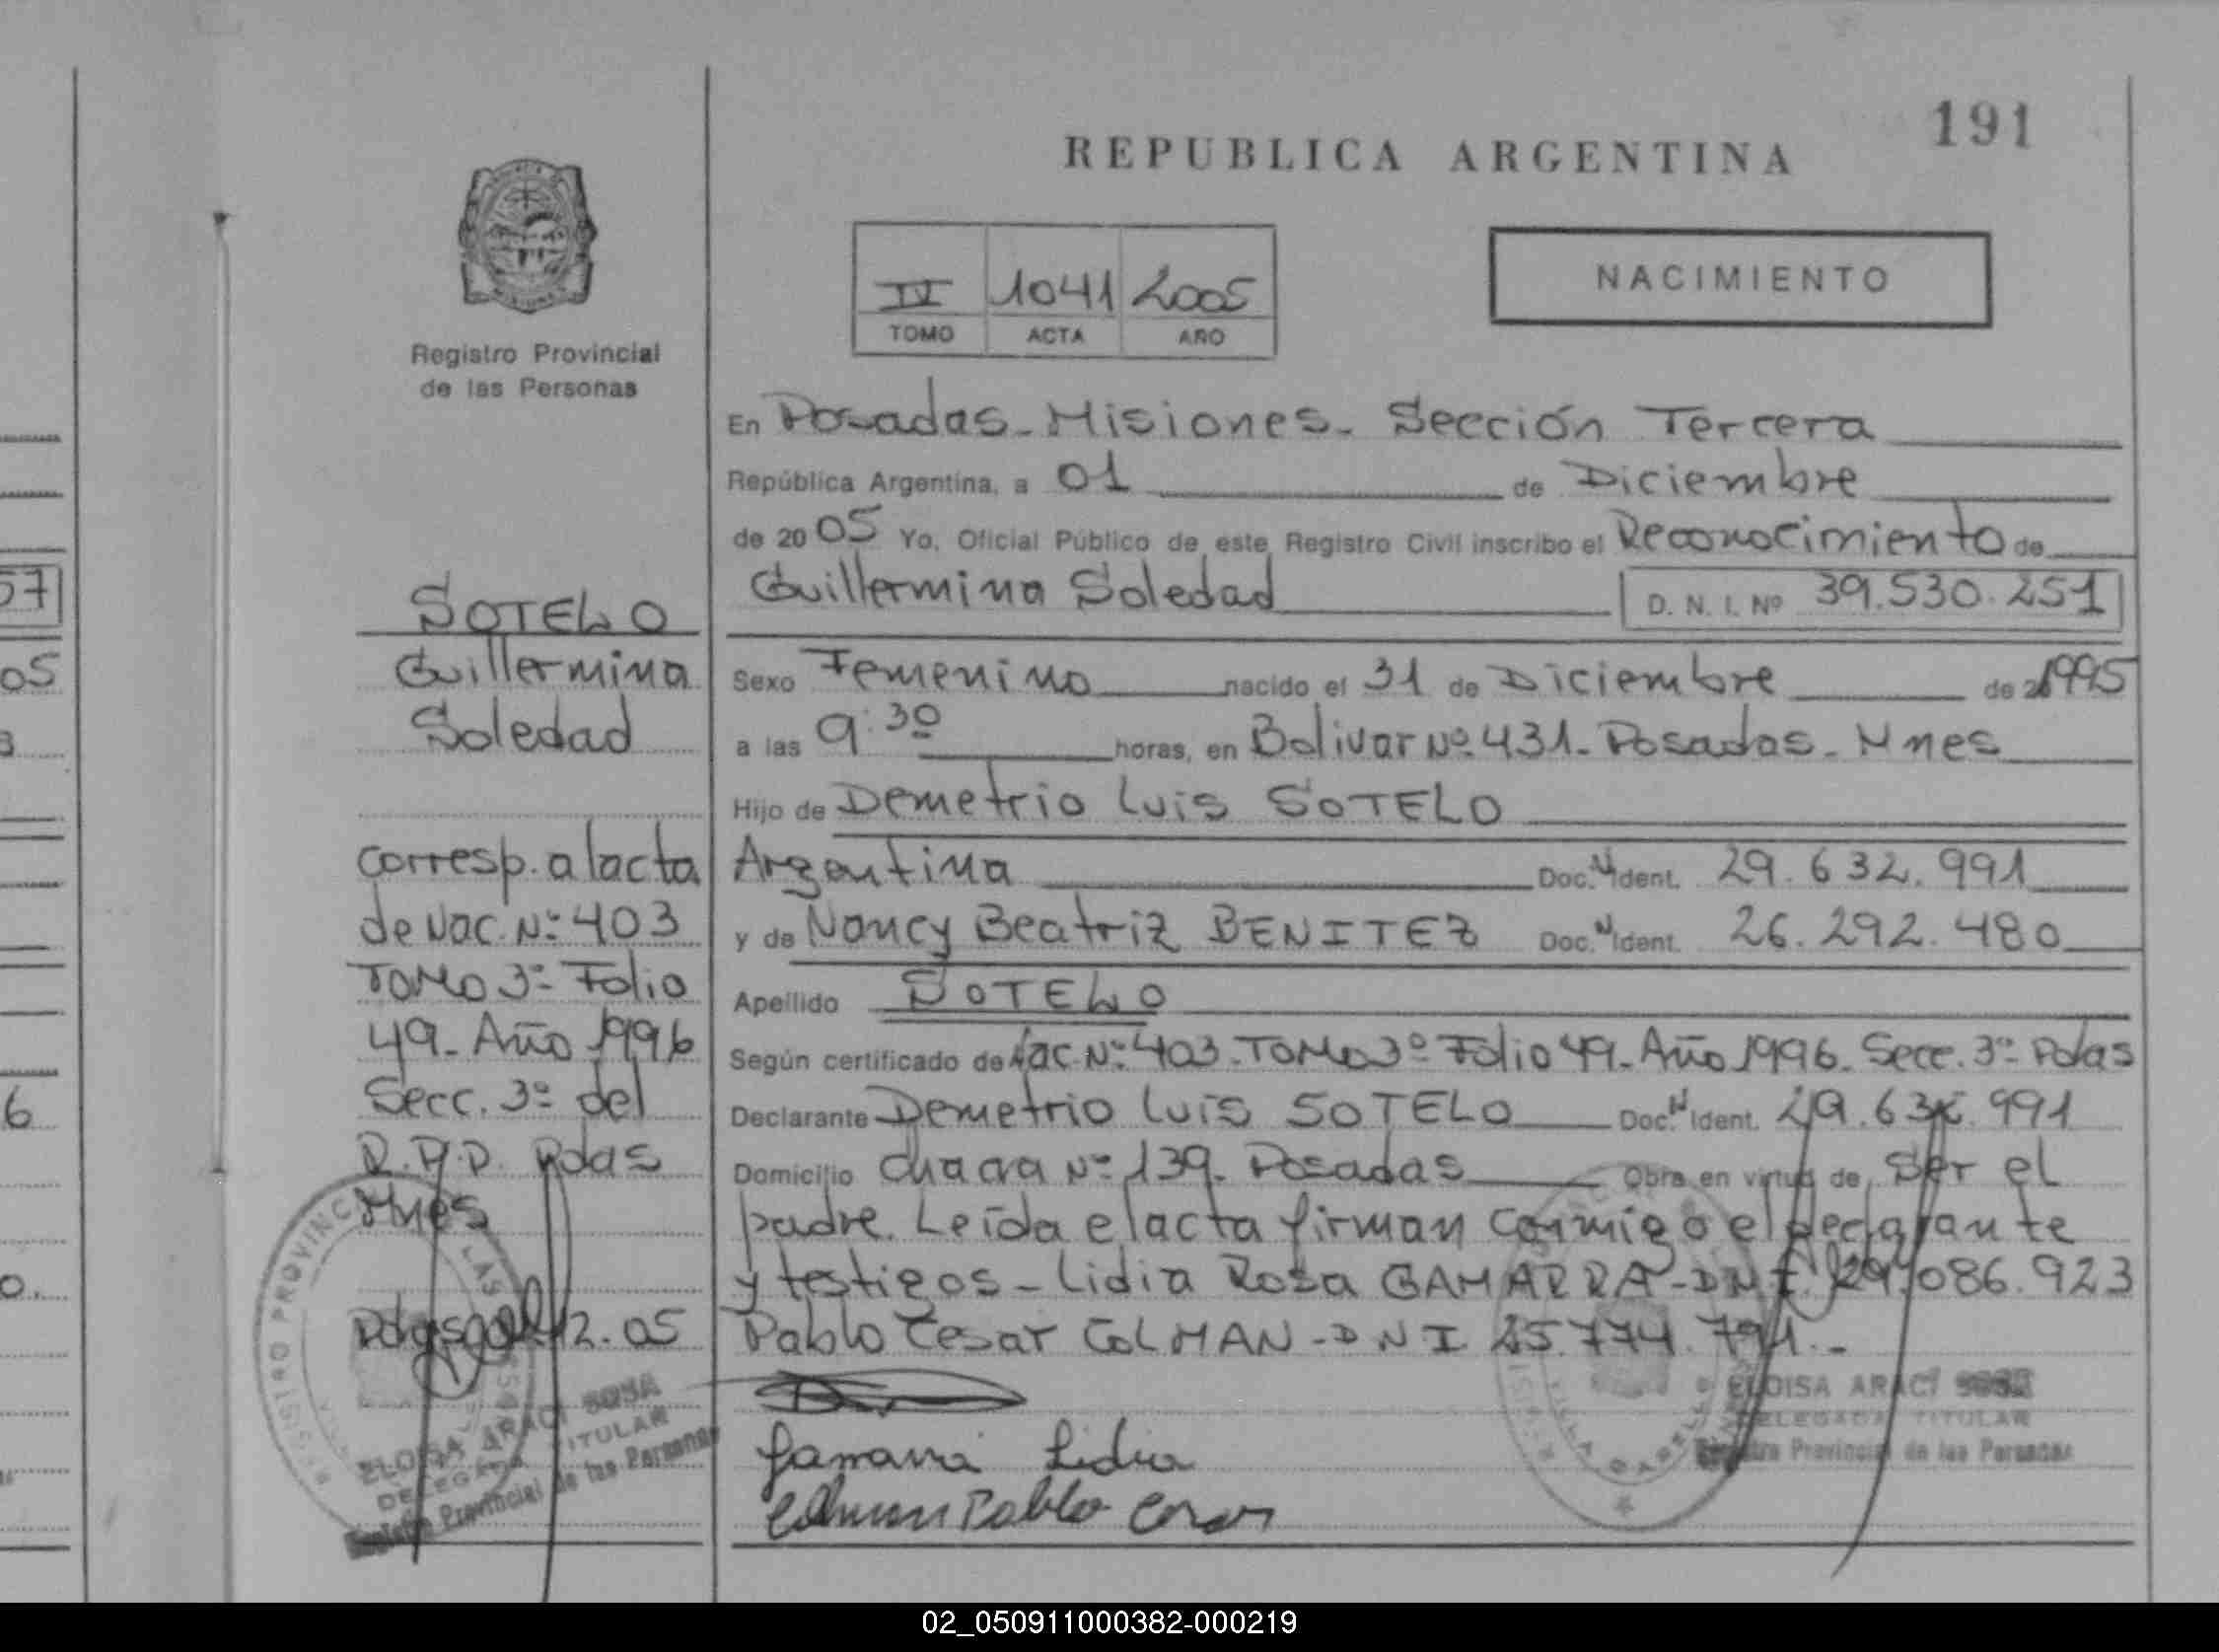 191
REPUBLICA ARGENTINA
NACIMIENTO
IV 1041 2005
TOMO ACTA AÑO
Registro Provincial
de las Personas
En Posadas - Misiones - Sección Tercera
República Argentina, a 01 de Diciembre
de 2005 Yo, Oficial Público de este Registro Civil inscribo el Reconocimiento de
Guillermina Soledad D. N. I. Nº 39.530.251
Sexo Femenino nacido el 31 de Diciembre de 1995
a las 9:30 horas, en Bolivar Nº 431 - Posadas - Mnes
Hijo de Demetrio Luis SOTELO
Argentina Doc. N Ident. 29.632.991
y de Nancy Beatriz BENITEZ Doc. N Ident. 26.292.480
Apellido SOTELO
Según certificado de Nac. Nº 403 - TOMO 3º Folio 49 - Año 1996 - Secc. 3º Pdas
Declarante Demetrio Luis SOTELO Doc. N Ident. 29.632.991
Domicilio Chacra Nº 139 - Posadas Obra en virtud de Ser el
padre. Leída el acta firman conmigo el declarante
y testigos - Lidia Rosa GAMARRA - DNI. 29.086.923
Pablo Cesar COLMAN - DNI 25.774.791.-
Gamarra Lidia
Colman Pablo Cesar
ELOISA ARACI SOSA
DELEGADA TITULAR
Registro Provincial de las Personas
SOTELO
Guillermina
Soledad
Corresp. al acta
de Nac. Nº 403
TOMO 3º Folio
49 - Año 1996
Secc. 3º del
R.P.P. Pdas
Mnes
Pdas 12.05
REGISTRO PROVINCIAL LAS
ELOISA ARACI SOSA
DELEGADA TITULAR
Registro Provincial de las Personas
57
05
3
6
0.
02_050911000382-000219